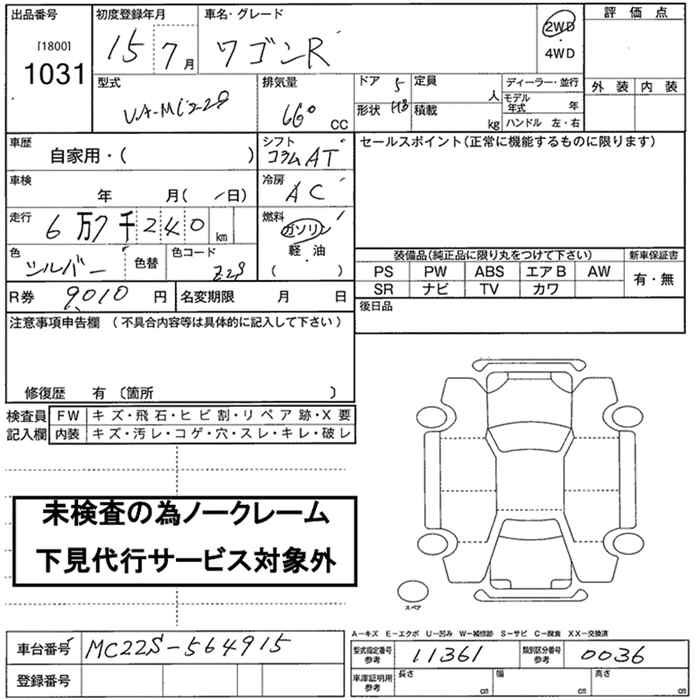 出品番号 初度登録年月 車名・グレード 評価点
[1800] 1031 15 7 月 ワゴンR 2WD ・ 4WD
外装 内装
型式 排気量 ドア 5 定員 人 ディーラー・並行
UA-MC22S 660 CC 形状 HB 積載 kg モデル年式 年
ハンドル 左・右
車歴 自家用・( ) シフト コラムAT セールスポイント(正常に機能するものに限ります)
車検 年 月( / 日) 冷房 AC
走行 6万7千240 km 燃料 ガソリン
軽・油
( )
色 シルバー 色替 色コード Z2S
装備品(純正品に限り丸をつけて下さい) 新車保証書
PS PW ABS エアB AW 有・無
SR ナビ TV カワ
R券 9010 円 名変期限 月 日 後日品
注意事項申告欄 (不具合内容等は具体的に記入して下さい)
修復歴 有 〔箇所 〕
検査員記入欄 FW キズ・飛石・ヒビ割・リペア跡・X要
内装 キズ・汚レ・コゲ・穴・スレ・キレ・破レ
未検査の為ノークレーム
下見代行サービス対象外
スペア
A-キズ E-エクボ U-凹み W-補修跡 S-サビ C-腐食 XX-交換済
車台番号 MC22S-564915 型式指定番号参考 11361 類別区分番号参考 0036
登録番号 車庫証明用参考 長さ cm 幅 cm 高さ cm